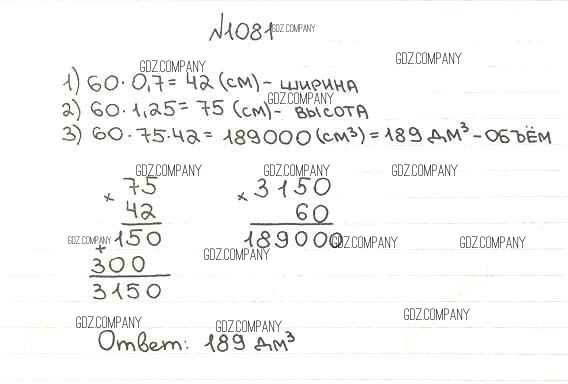 №1081 GDZ.COMPANY
GDZ.COMPANY GDZ.COMPANY
1) 60 · 0,7 = 42 (см) - ширина
GDZ.COMPANY
2) 60 · 1,25 = 75 (см) - высота
3) 60 · 75 · 42 = 189000 (см³) = 189 дм³ - объём
GDZ.COMPANY GDZ.COMPANY GDZ.COMPANY
75 × 3150
× 42 60
GDZ.COMPANY 150 189000 GDZ.COMPANY GDZ.COMPANY
+ GDZ.COMPANY
300
3150
GDZ.COMPANY GDZ.COMPANY GDZ.COMPANY
Ответ: 189 дм³